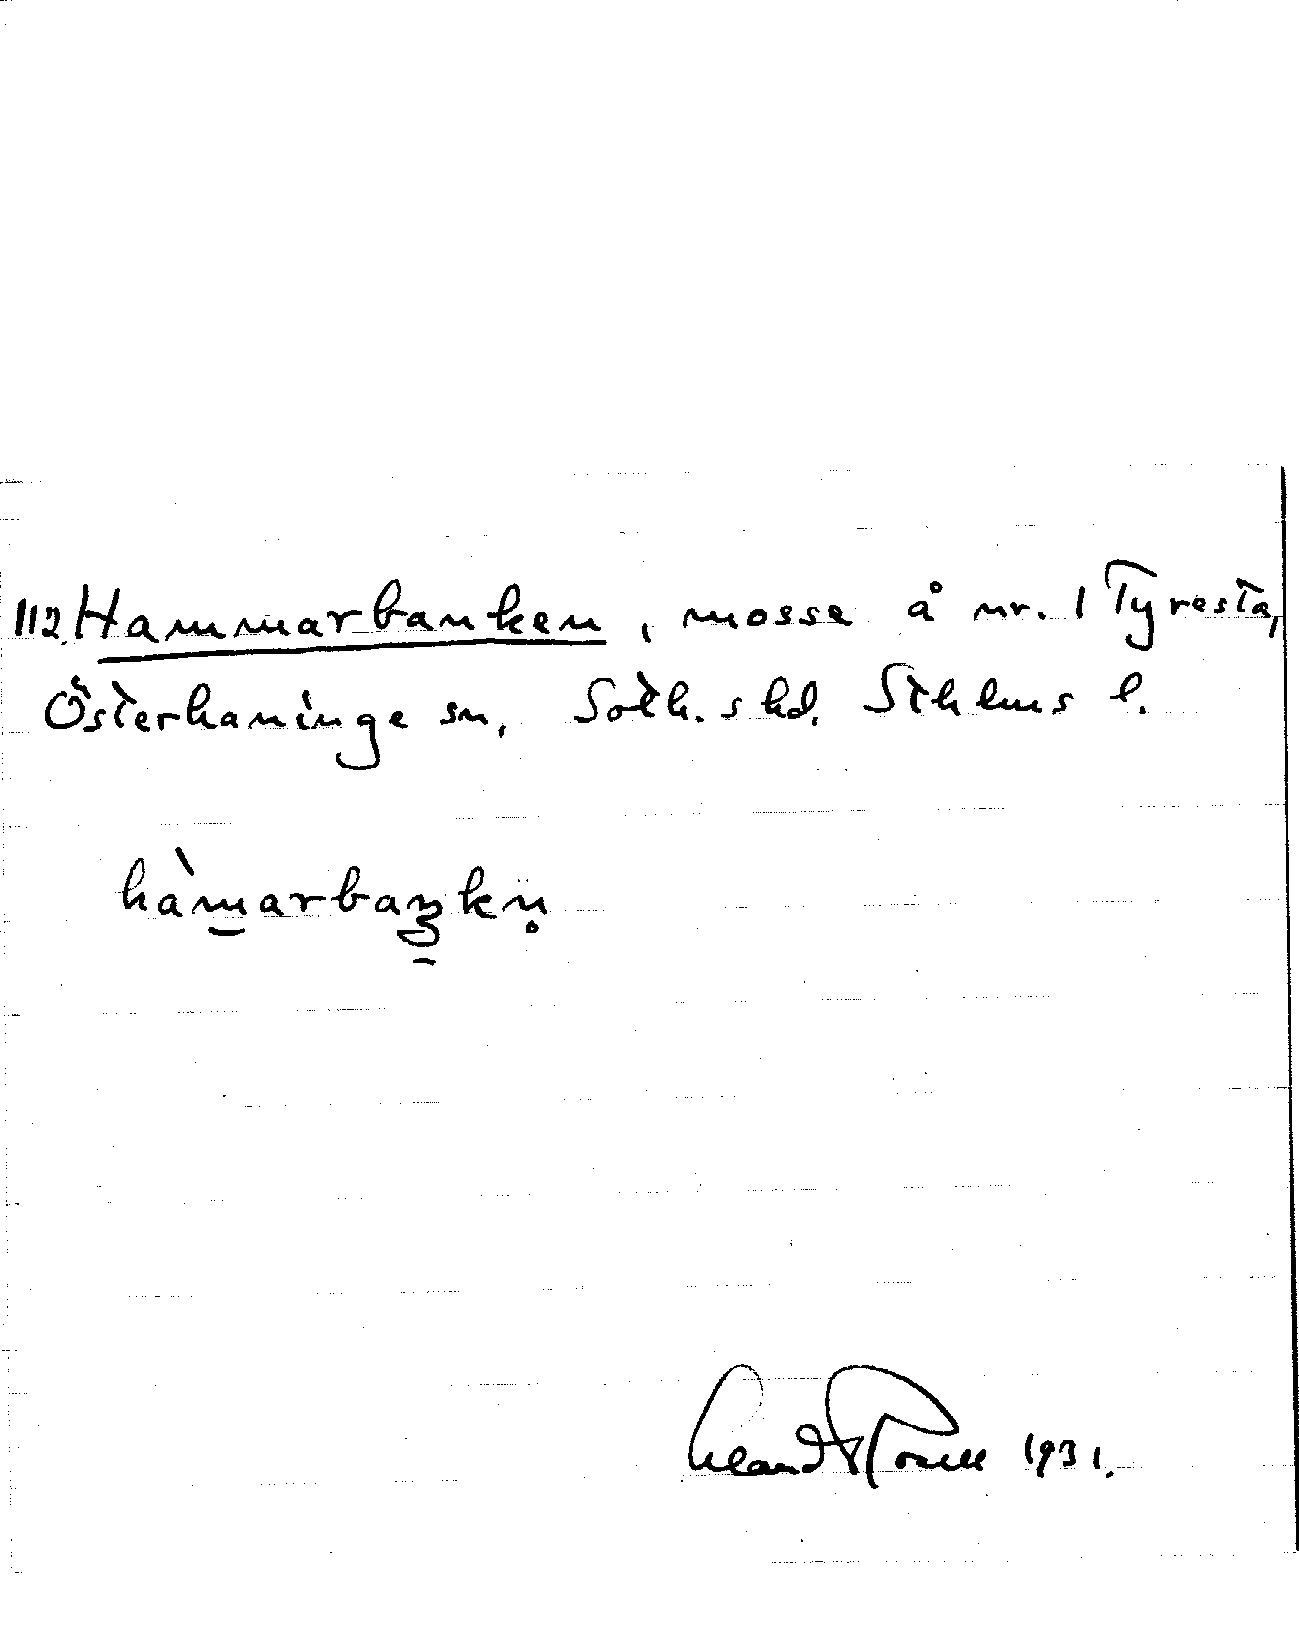 112 Hammarbanken, mosse å nr. 1 Tyresta,
Österhaninge sn, Soth.s hd. Sthlms l.
hàmarbaŋkn̥
1931.